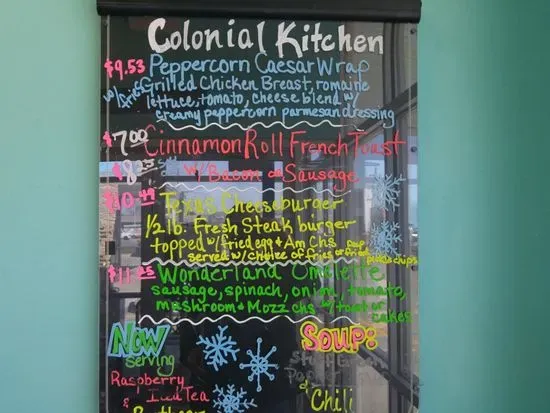 Colonial Kitchen
$9.53 Peppercorn Caesar Wrap
w/fries Grilled Chicken Breast, romaine
lettuce, tomato, cheese blend w/
creamy peppercorn parmesan dressing
$7.00 Cinnamon Roll French Toast
w/ Bacon or Sausage
$10.49 Texas Cheeseburger
1/2 lb. Fresh Steak burger
topped w/ fried egg & Am chs
served w/ choice of fries or fried
pickle chips
Wonderland Omelette
sausage, spinach, onion, tomato,
mushroom & Mozz chs w/ toast or
cakes
Now
serving
Raspberry
& Iced Tea
Soup:
Chili